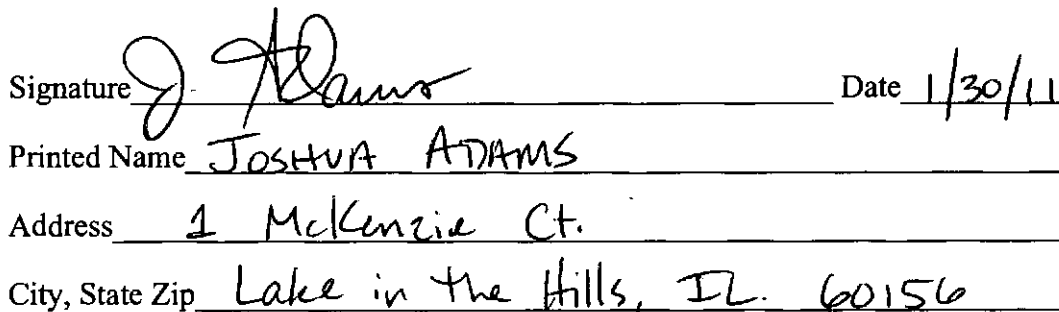 Signature J Adams Date 1/30/11
Printed Name JOSHUA ADAMS
Address 1 McKenzie Ct.
City, State Zip Lake in the Hills, IL. 60156